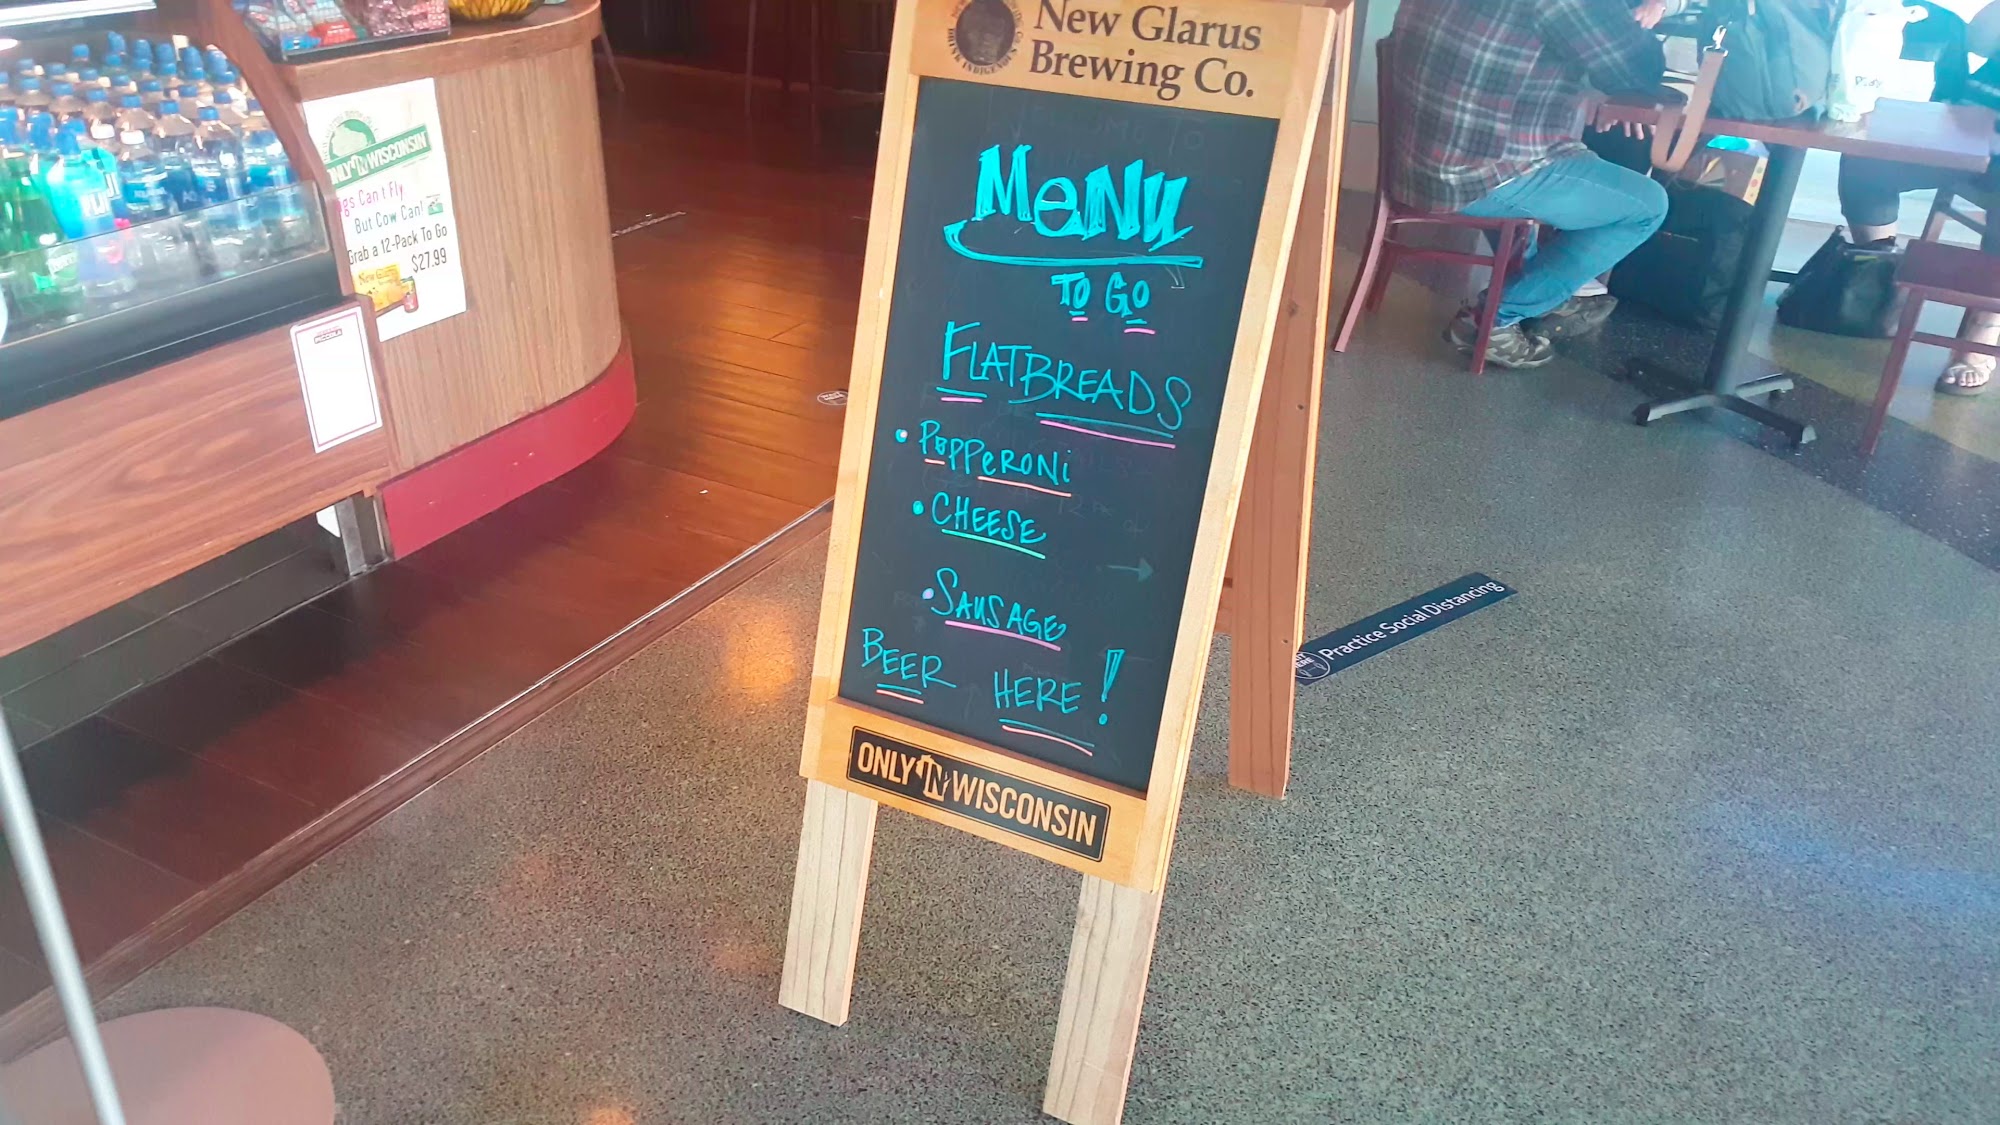 New Glarus
Brewing Co.
DRINK INDIGENOUS
MeNu
TO GO
FLATBREADS
• PePPeRONi
• CHEESE
• SAUSAGE
BEER HERE!
ONLY IN WISCONSIN
ONLY IN WISCONSIN
gs Can't Fly
But Cow Can!
Grab a 12-Pack To Go
$27.99
New Glarus
Practice Social Distancing
Play